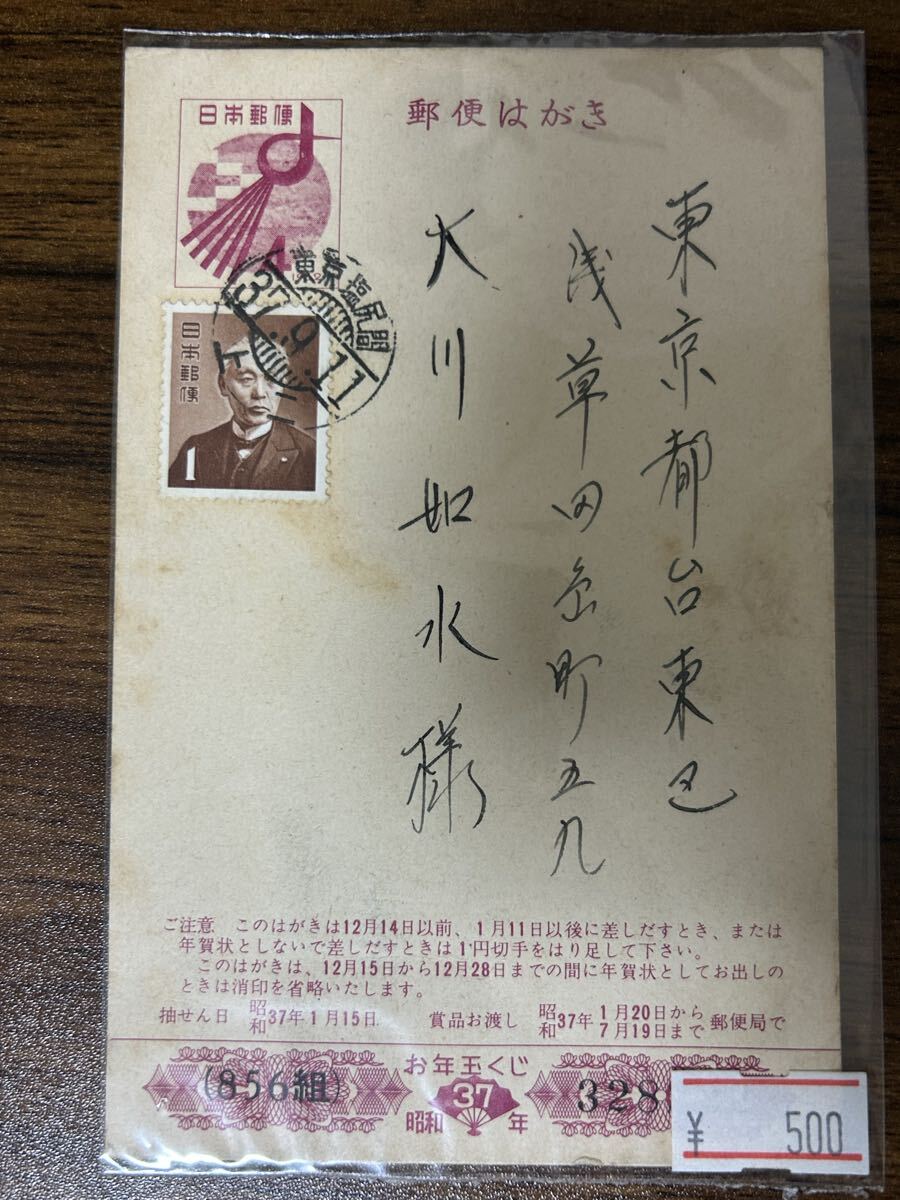 郵便はがき
日本郵便
4
日本郵便
1
東京塩尻間
37.9.11
下二
東京都台東区
浅草田島町五九
大川如水様
ご注意 このはがきは12月14日以前、1月11日以後に差しだすとき、または
年賀状としないで差しだすときは1円切手をはり足して下さい。
このはがきは、12月15日から12月28日までの間に年賀状としてお出しの
ときは消印を省略いたします。
抽せん日 昭和37年1月15日 賞品お渡し 昭和37年1月20日から7月19日まで郵便局で
お年玉くじ
(856組)
昭和37年
328
¥ 500